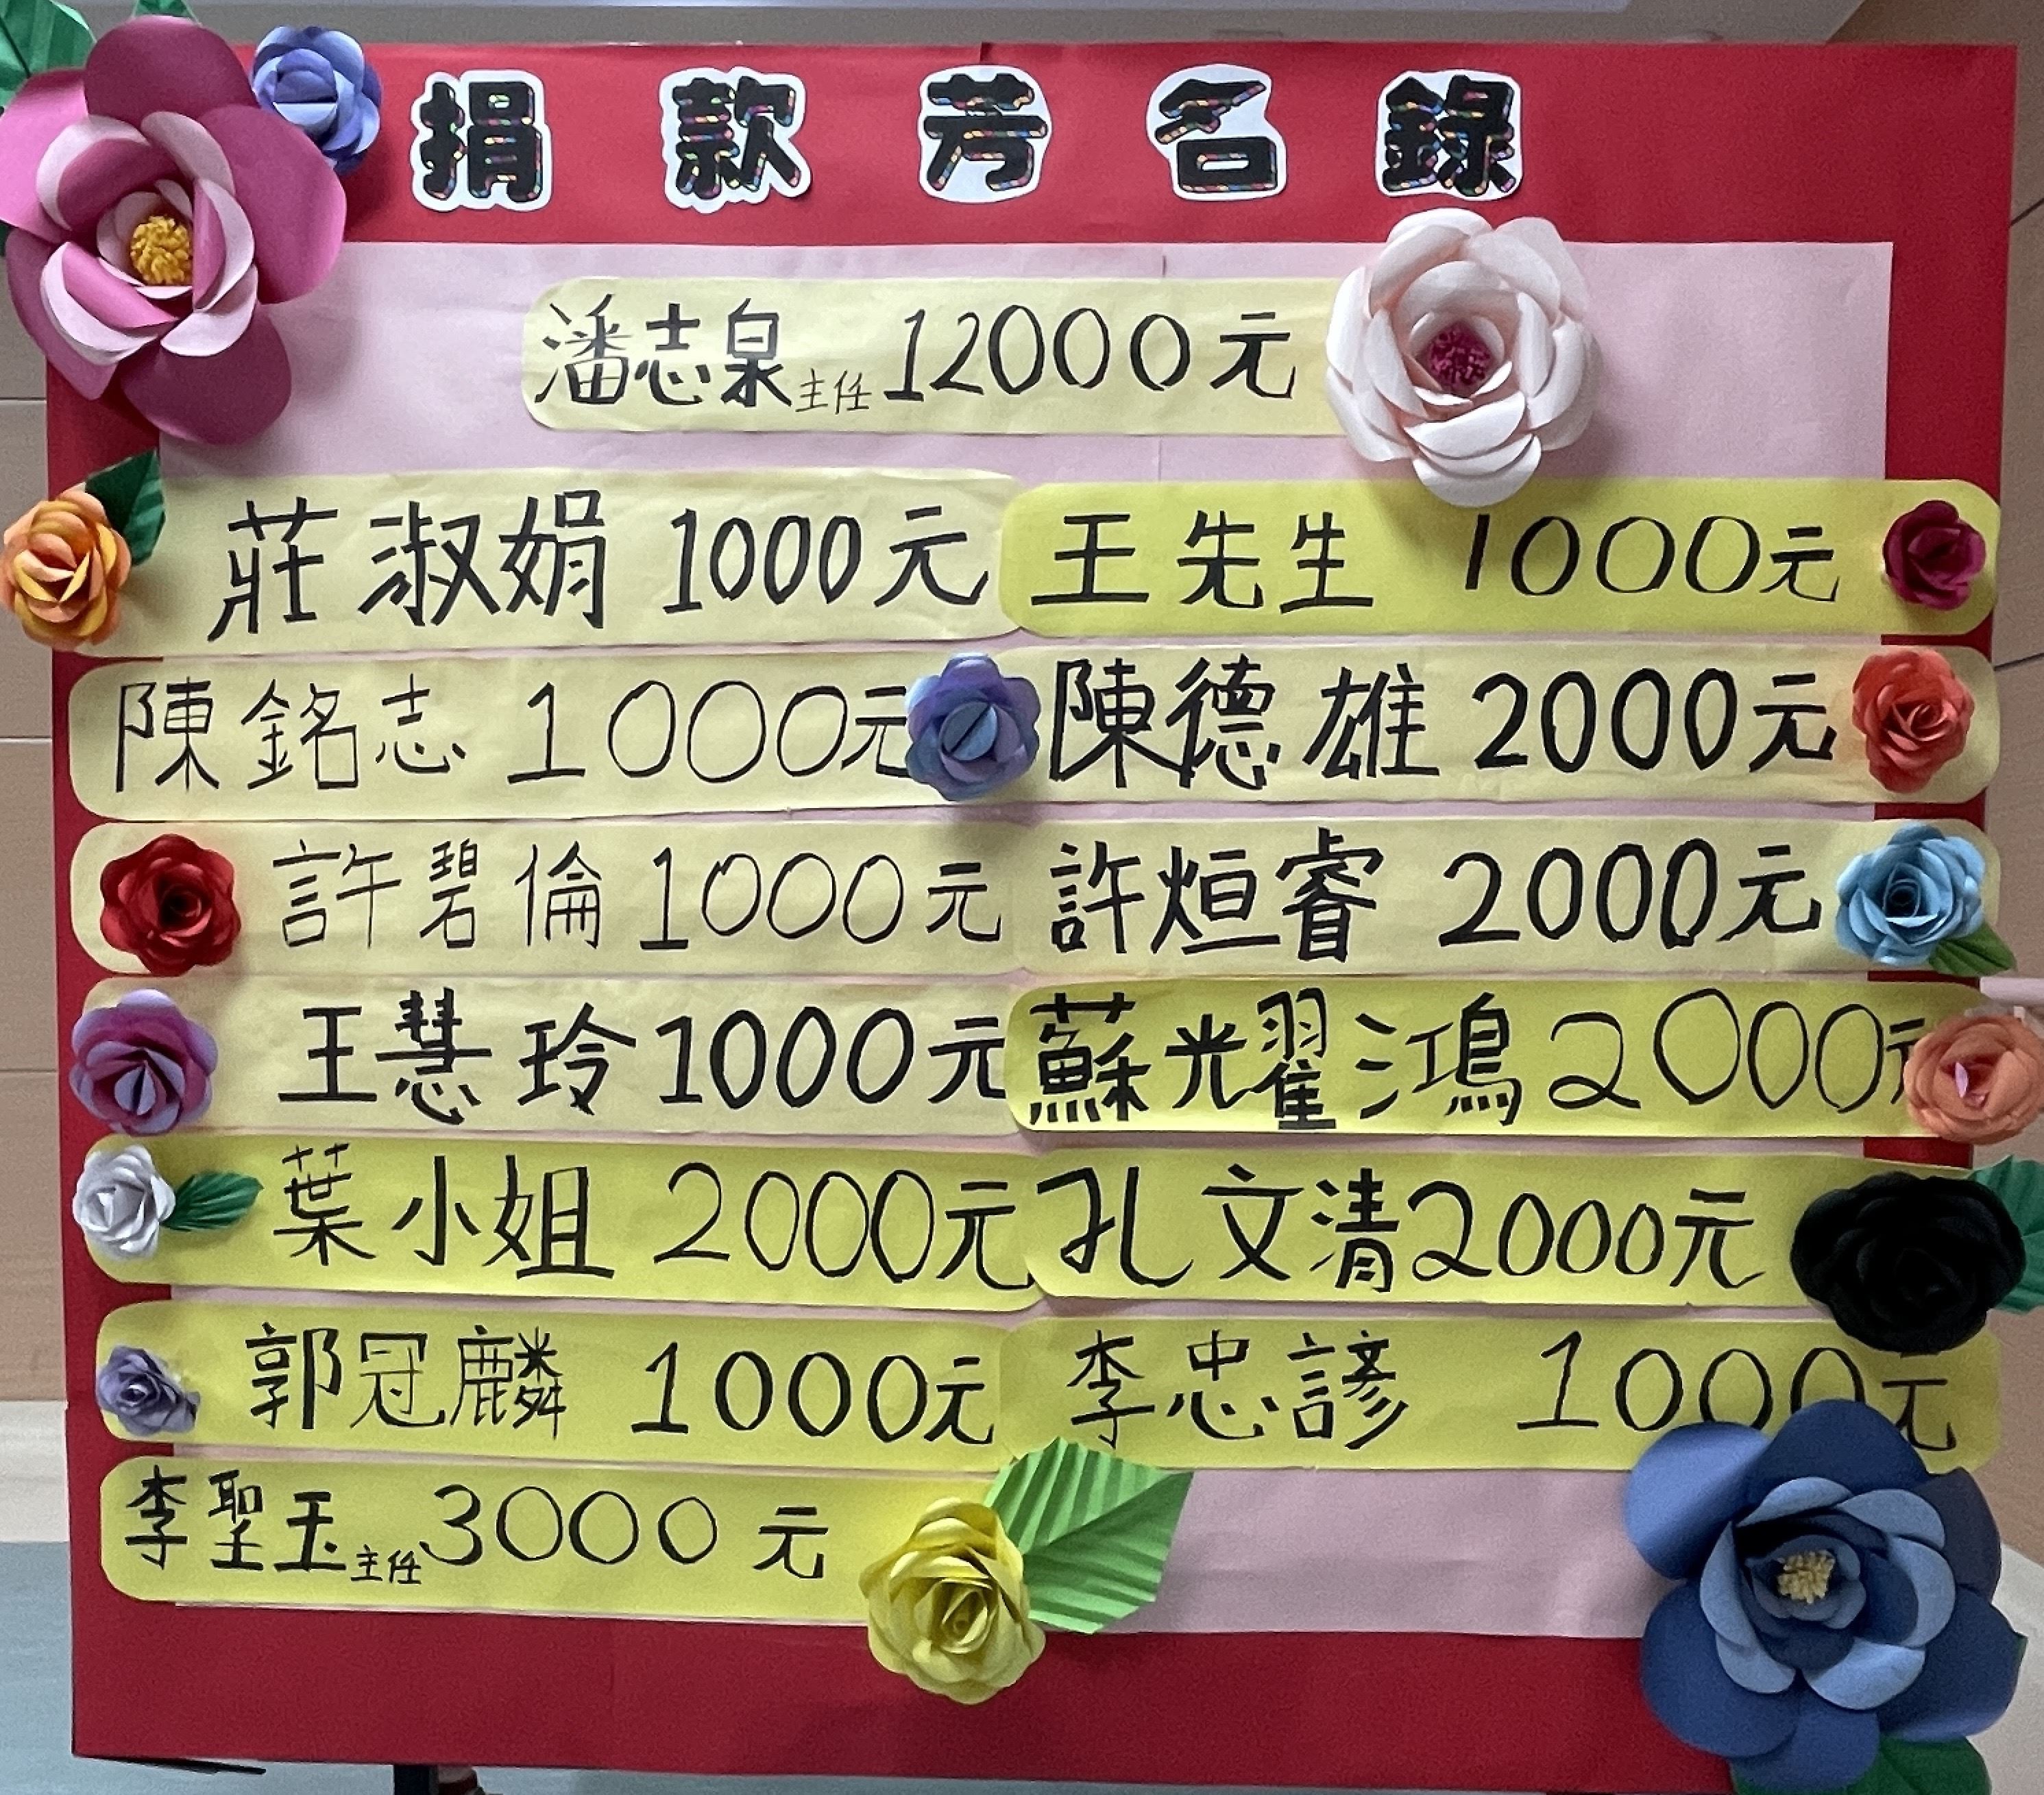 捐款芳名錄
潘志泉主任12000元
莊淑娟 1000元
王先生 1000元
陳銘志 1000元
陳德雄 2000元
許碧倫 1000元
許烜睿 2000元
王慧玲 1000元
蘇光耀鴻 2000元
葉小姐 2000元
孔文清 2000元
郭冠麟 1000元
李忠諺 1000元
李聖玉主任3000元